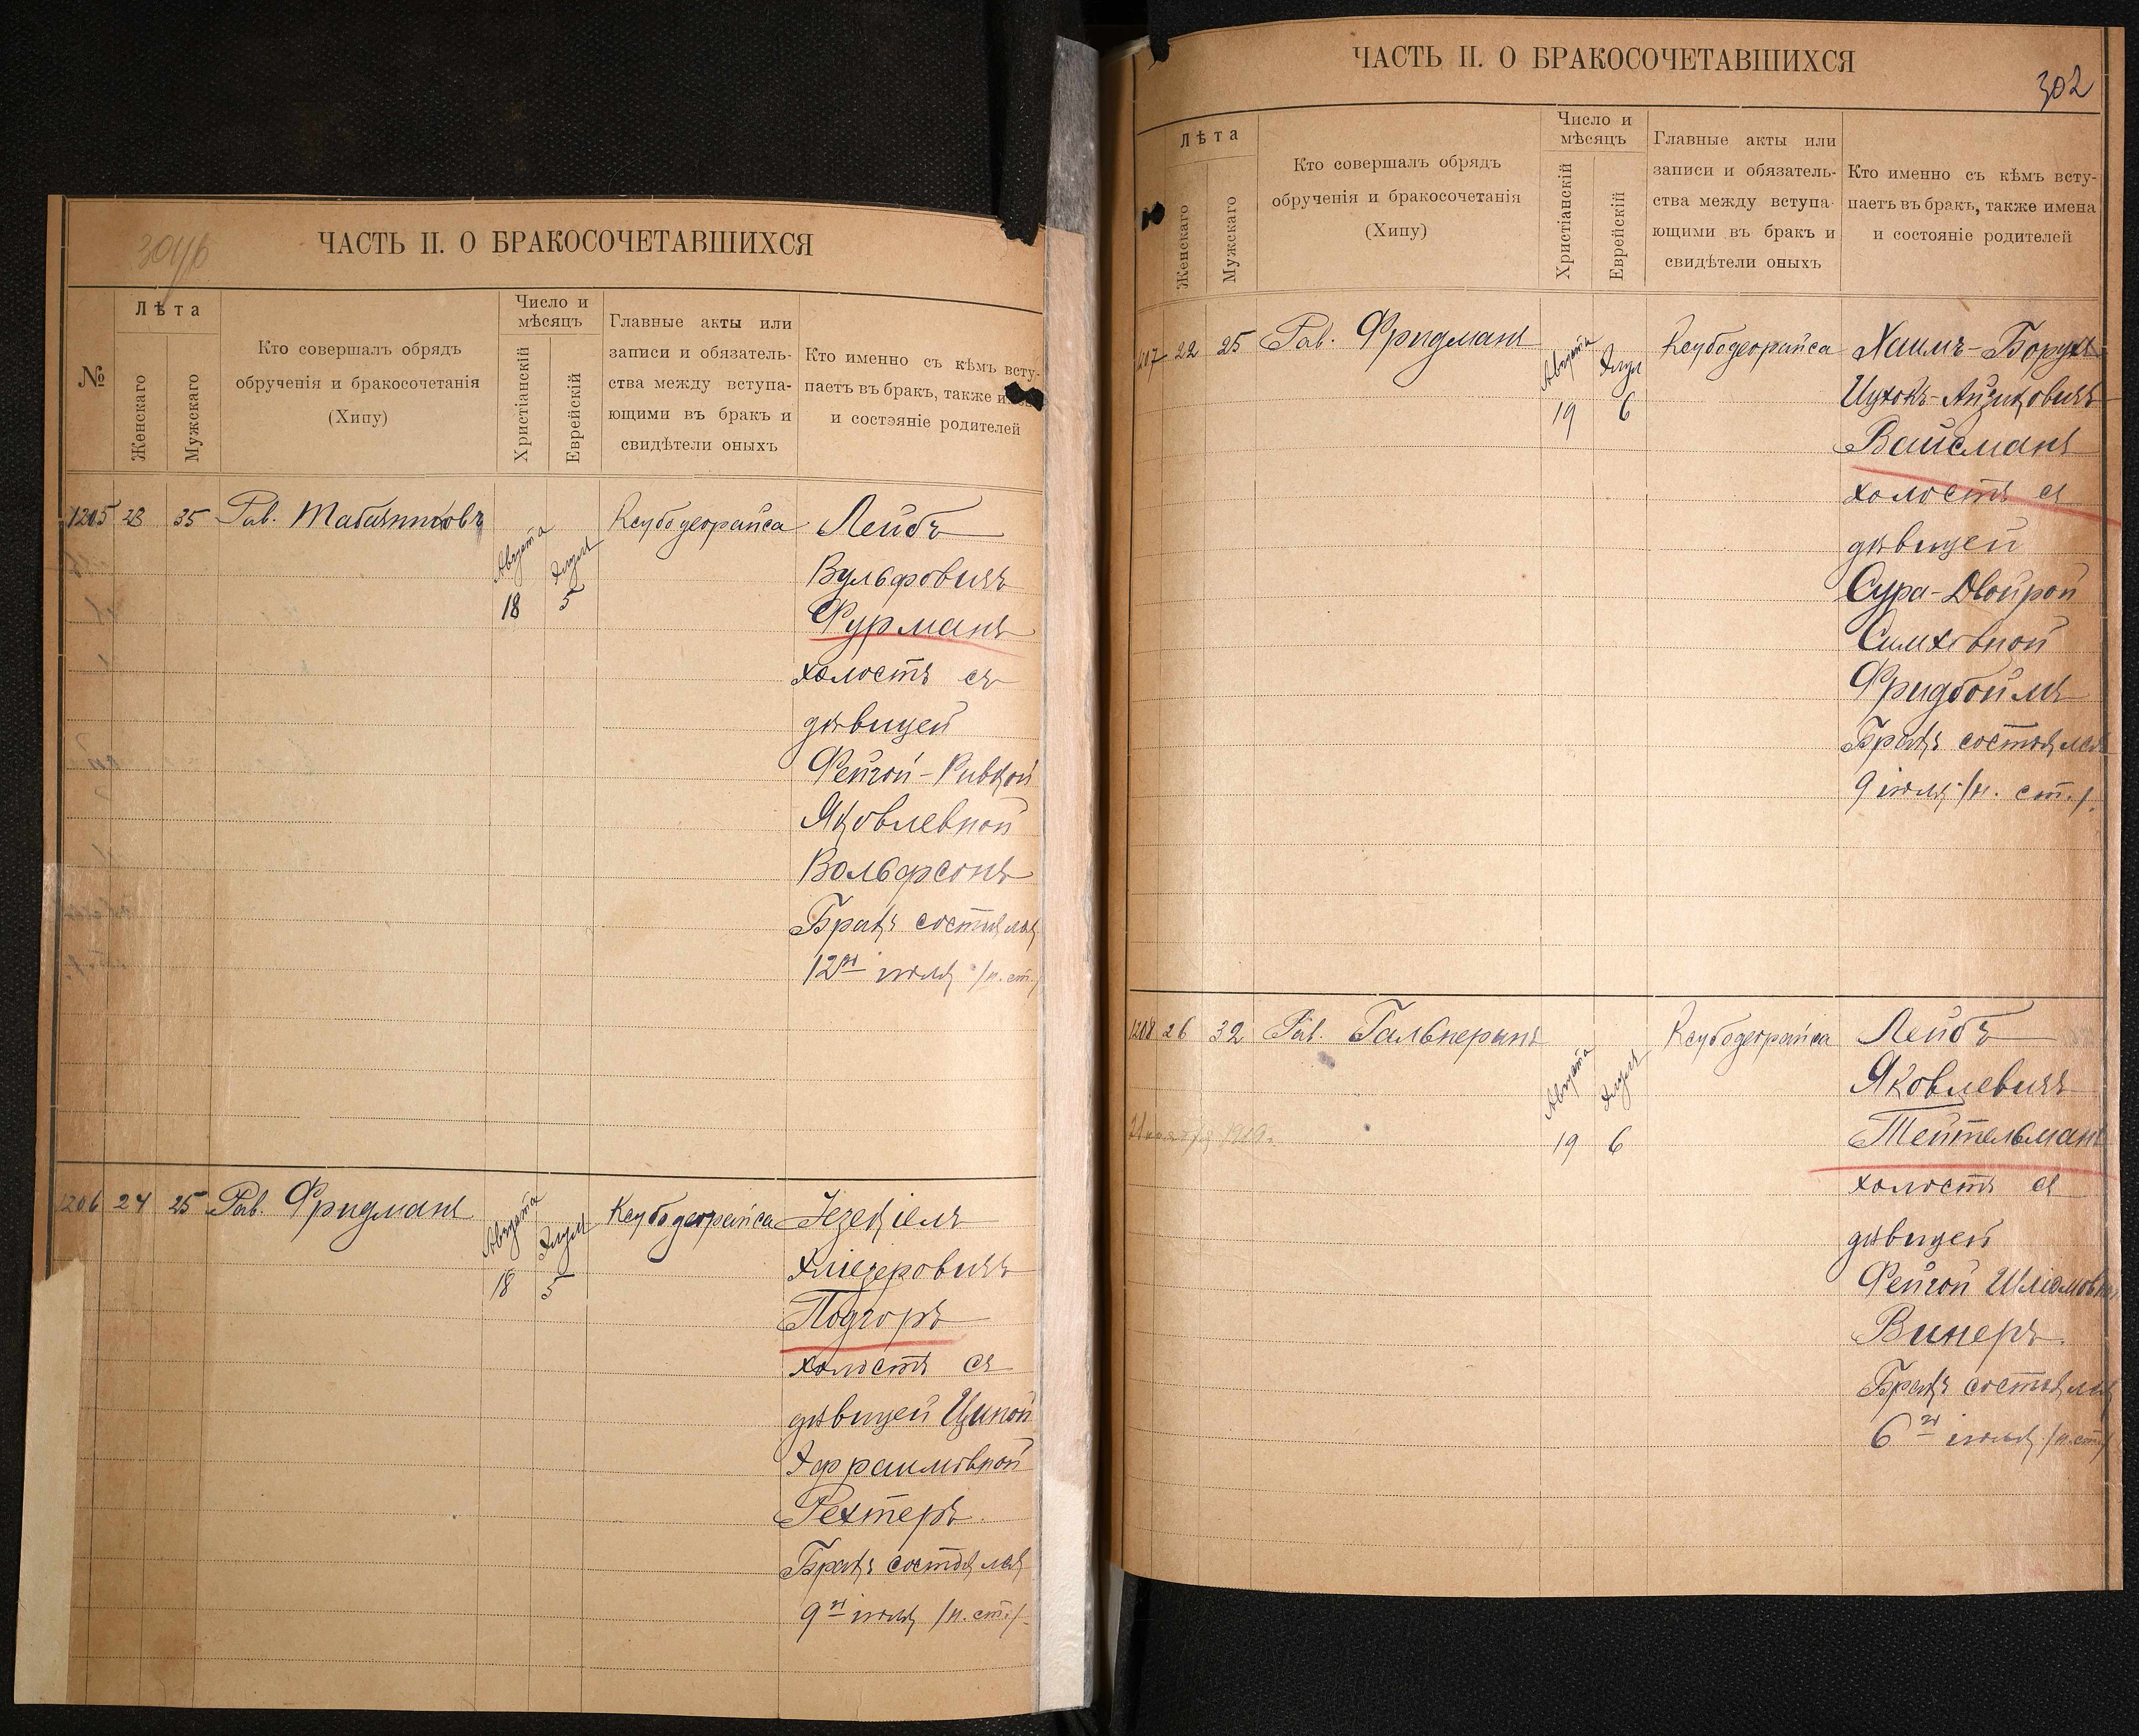 ЧАСТЬ II. О БРАКОСОЧЕТАВШИХСЯ
№
Лѣта
Женскаго
Мужскаго
Кто совершалъ обрядъ
обрученія и бракосочетанія
(Хипу)
Число и
мѣсяцъ
Христіанскій
Еврейскій
Главные акты или
записи и обязатель-
ства между вступа-
ющими въ бракъ и
свидѣтели оныхъ
Кто именно съ кѣмъ всту-
паетъ въ бракъ, также
и состэяніе родителей
1205 23 35 Рав. Табачниковъ
Августа 18
Элуля 5
Ксубодеорайса
Лейбъ
Вульфовичъ
Фурманъ
холостъ съ
дѣвицей
Фейгой-Ривкой
Яковлевной
Вольфсонъ
Бракъ состоялся
12го іюля /н. ст./
1206 24 25 Рав. Фридманъ
Августа 18
Элуля 5
Ксубодеорайса
Іезекіель
Эліезеровичъ
Подгоръ
холостъ съ
дѣвицей Ципой
Эфраимовной
Рехтеръ.
Бракъ состоялся
9го іюля /н. ст./.
ЧАСТЬ II. О БРАКОСОЧЕТАВШИХСЯ
302
Лѣта
Женскаго
Мужскаго
Кто совершалъ обрядъ
обрученія и бракосочетанія
(Хипу)
Число и
мѣсяцъ
Христіанскій
Еврейскій
Главные акты или
записи и обязатель-
ства между вступа-
ющими въ бракъ и
свидѣтели оныхъ
Кто именно съ кѣмъ всту-
паетъ въ бракъ, также имена
и состояніе родителей
1207 22 25 Рав. Фридманъ
Августа 19
Элул 6
Ксубодеорайса
Хаимъ-Борухъ
Ицхокъ-Айзиковичъ
Вайсманъ
холостъ съ
дѣвицей
Сура-Двойрой
Симховной
Фридбоймъ
Бракъ состоялся
9 іюля /н. ст./.
1208 26 32 Рав. Гальперинъ
Августа 19
Элуля 6
Ксубодеорайса
Лейбъ
Яковлевичъ
Тейтельманъ
холостъ съ
дѣвицей
Фейгой Шліомовной
Винеръ.
Бракъ состоялся
6го іюля /н. ст./